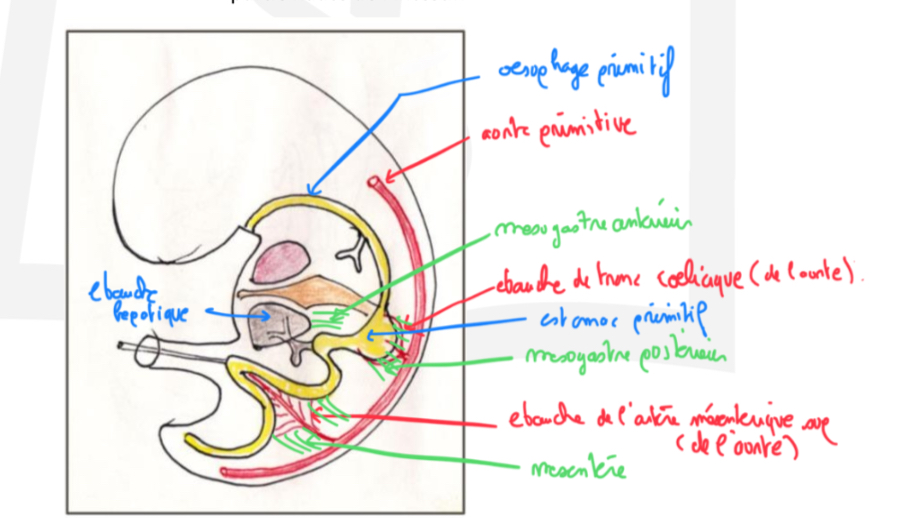 oesophage primitif
aorte primitive
mesogastre antérieur
ebauche de tronc coeliaque (de l'aorte).
ebauche
hepatique
estomac primitif
mesogastre postérieur
ebauche de l'artère mésenterique sup
(de l'aorte)
mesentère